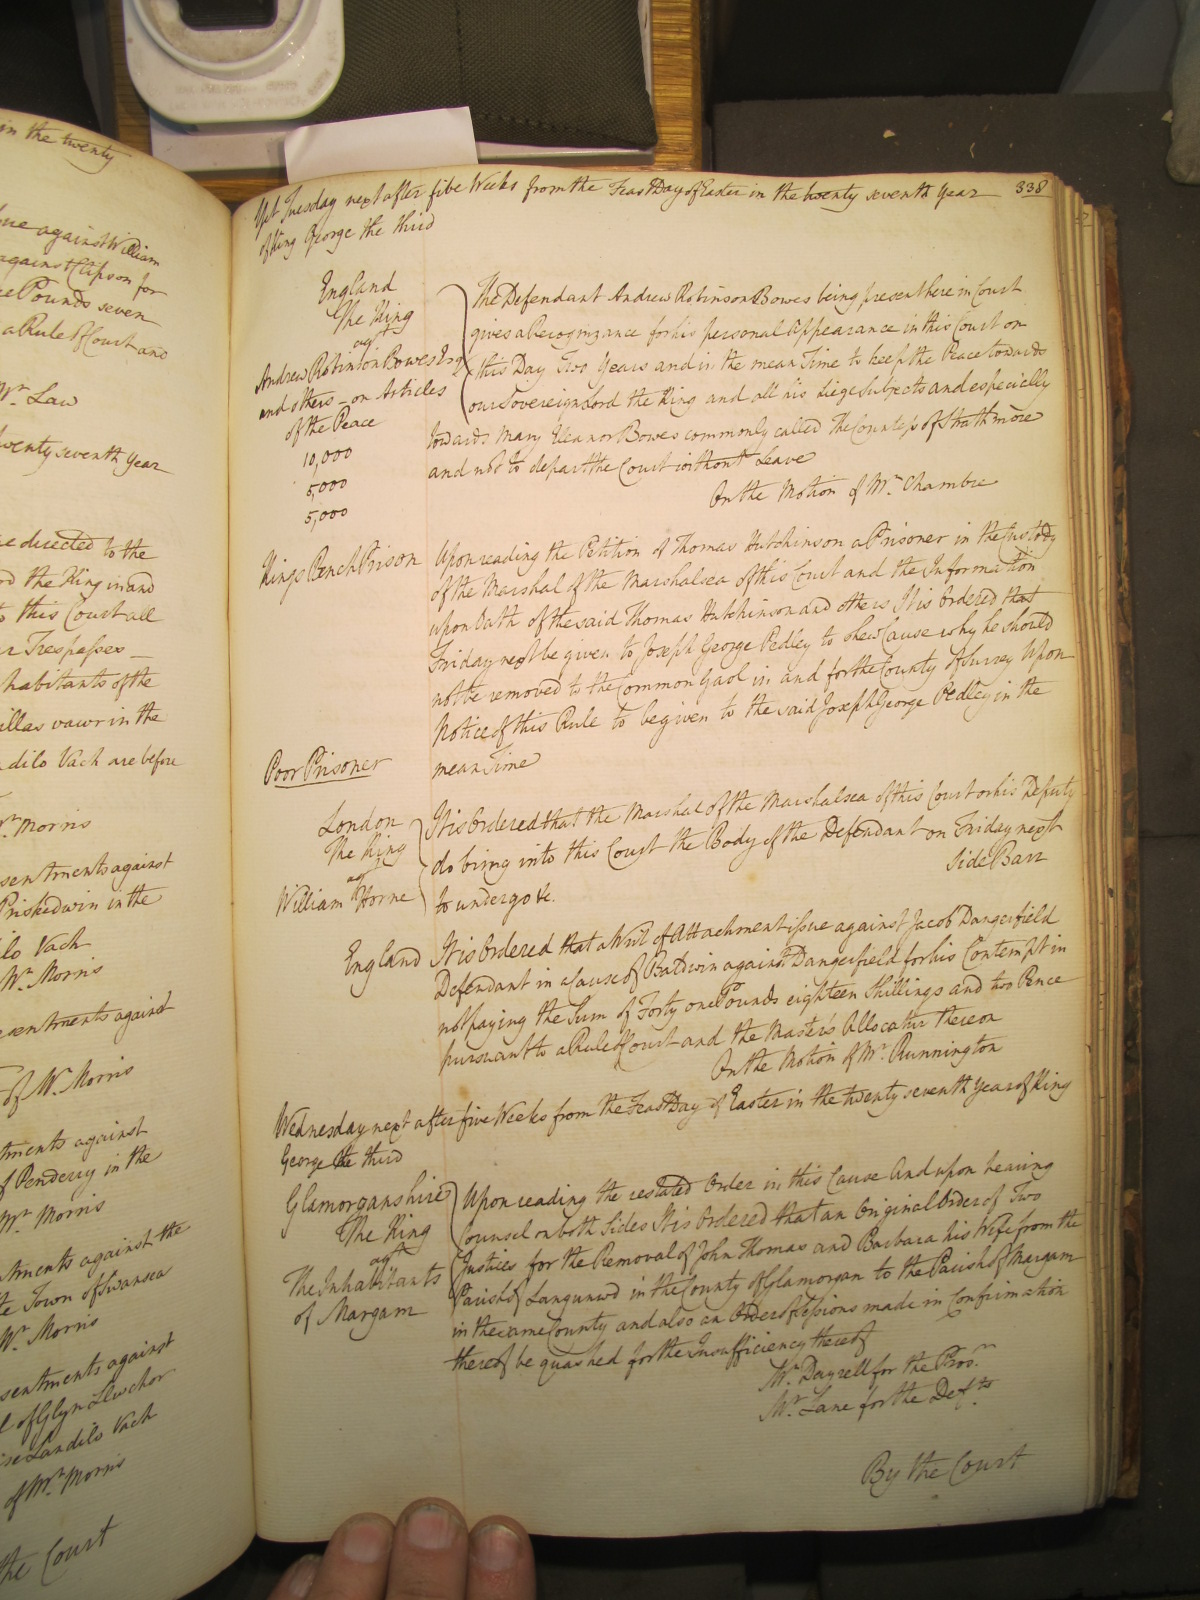 in the twenty
ue against William
against Clipson for
ee Pounds seven
a Rule of Court and
Mr. Law
twenty seventh Year
e directed to the
rd the King in and
to this Court all
er Trespasses
habitants of the
illas vawr in the
dilo Vach are before
Mr. Morris
sentments against
Priskedwin in the
ilo Vach
Mr. Morris
esentments against
of Mr. Morris
tments against
of Penderry in the
Mr. Morris
ntments against the
te Town of Swansea
Mr. Morris
sentments against
l of Glyn Llwchor
ise Landilo Vach
of Mr. Morris
the Court
338
Yet Tuesday next after five Weeks from the Feast Day of Easter in the twenty seventh Year
of King George the third
England
The King
agt
Andrew Robinson Bowes Esqr
and others - on Articles
of the Peace
10,000
5,000
5,000
The Defendant Andrew Robinson Bowes being present here in Court
gives a Recognizance for his personal Appearance in this Court on
this Day Two Years and in the mean Time to keep the Peace towards
our Sovereign Lord the King and all his Liege Subjects and especially
towards Mary Eleanor Bowes commonly called The Countess of Strathmore
and not to depart the Court without Leave
On the Motion of Mr. Chambre
Kings Bench Prison
Upon reading the Petition of Thomas Hutchinson a Prisoner in the Custody
of the Marshal of the Marshalsea of this Court and the Information
upon Oath of the said Thomas Hutchinson and others It is Ordered that
Friday next be given to Joseph George Pedley to shew Cause why he should
not be removed to the Common Gaol in and for the County of Surrey Upon
Notice of this Rule to be given to the said Joseph George Pedley in the
mean Time
Poor Prisoner
London
The King
agt
William Horne
It is Ordered that the Marshal of the Marshalsea of this Court or his Deputy
do bring into this Court the Body of the Defendant on Friday next
to undergo &c.
Side Barr
England
It is Ordered that a Writ of Attachment issue against Jacob Dangerfield
Defendant in a Cause of Baldwin against Dangerfield for his Contempt in
not paying the Sum of Forty one Pounds eighteen Shillings and two Pence
pursuant to a Rule of Court and the Master's Allocatur thereon
On the Motion of Mr. Runnington
Wednesday next after five Weeks from the Feast Day of Easter in the twenty seventh Year of King
George the third
Glamorganshire
The King
agt
The Inhabitants
of Margam
Upon reading the restated Order in this Cause And upon hearing
Counsel on both Sides It is Ordered that an Original Order of Two
Justices for the Removal of John Thomas and Barbara his Wife from the
Parish of Langunwd in the County of Glamorgan to the Parish of Margam
in the same County and also an Order of Sessions made in Confirmation
thereof be quashed for the Insufficiency thereof
Mr. Dayrell for the Prosr.
Mr. Lane for the Defts.
By the Court